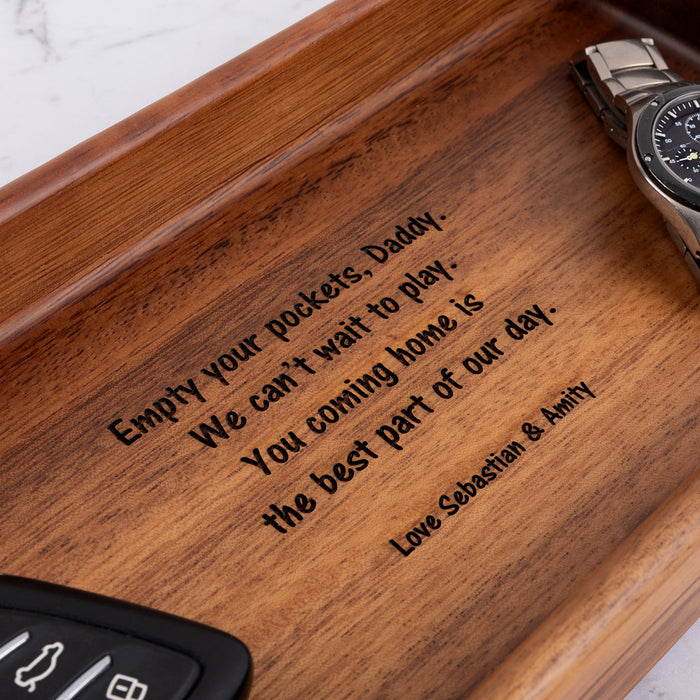 Empty your pockets, Daddy.
We can't wait to play.
You coming home is
the best part of our day.
Love Sebastian & Amity